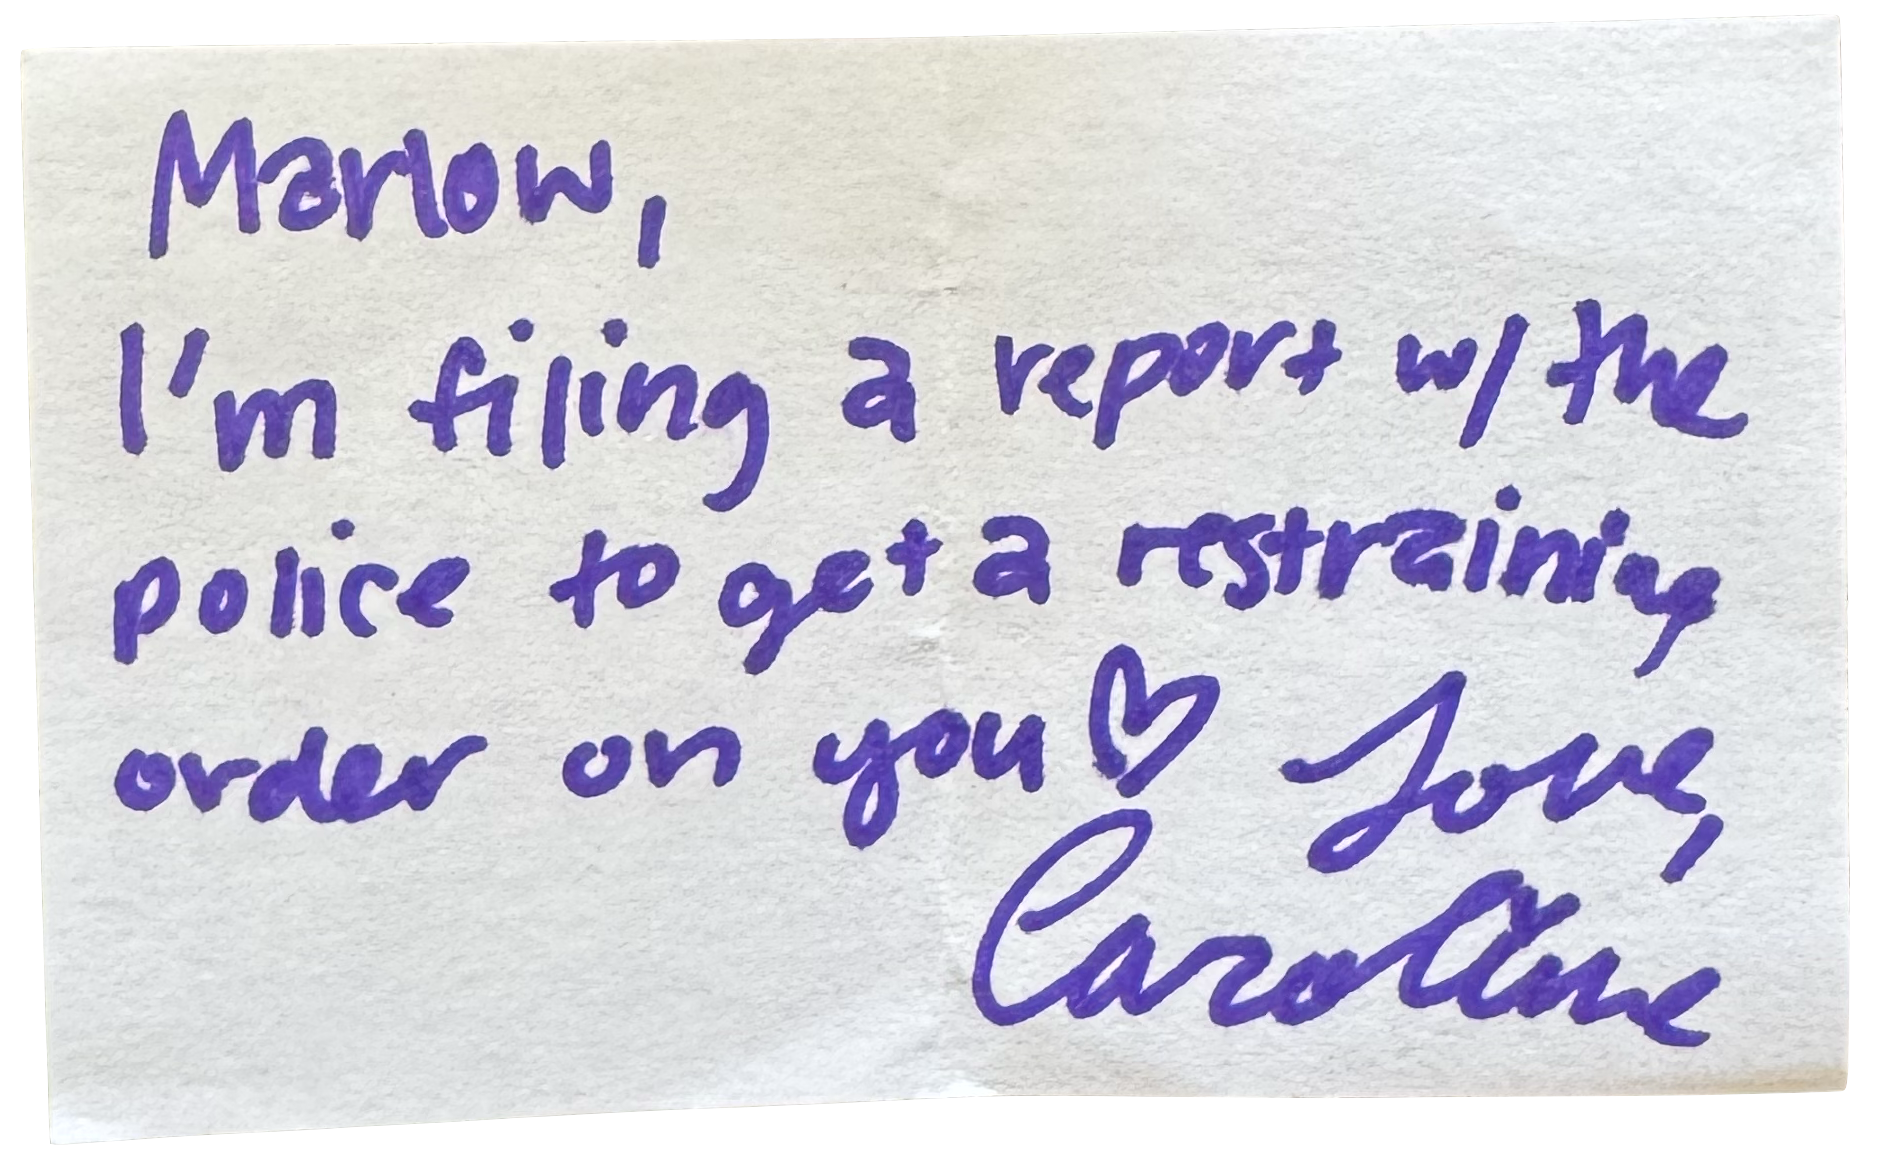 Marlow,
I'm filing a report w/ the
police to get a restraining
order on you♡ Love,
Caroline